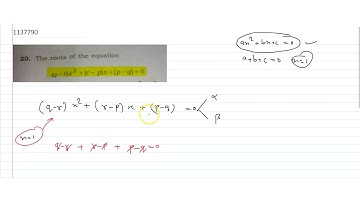 1137790
20. The roots of the equation
(q – r)x² + (r – p)x + (p – q) = 0
ax² + bx + c = 0
a+b+c = 0 x=1
(q-r) x² + (r-p) x + (p-q) = 0 < α β
x=1
q-r + r-p + p-q = 0